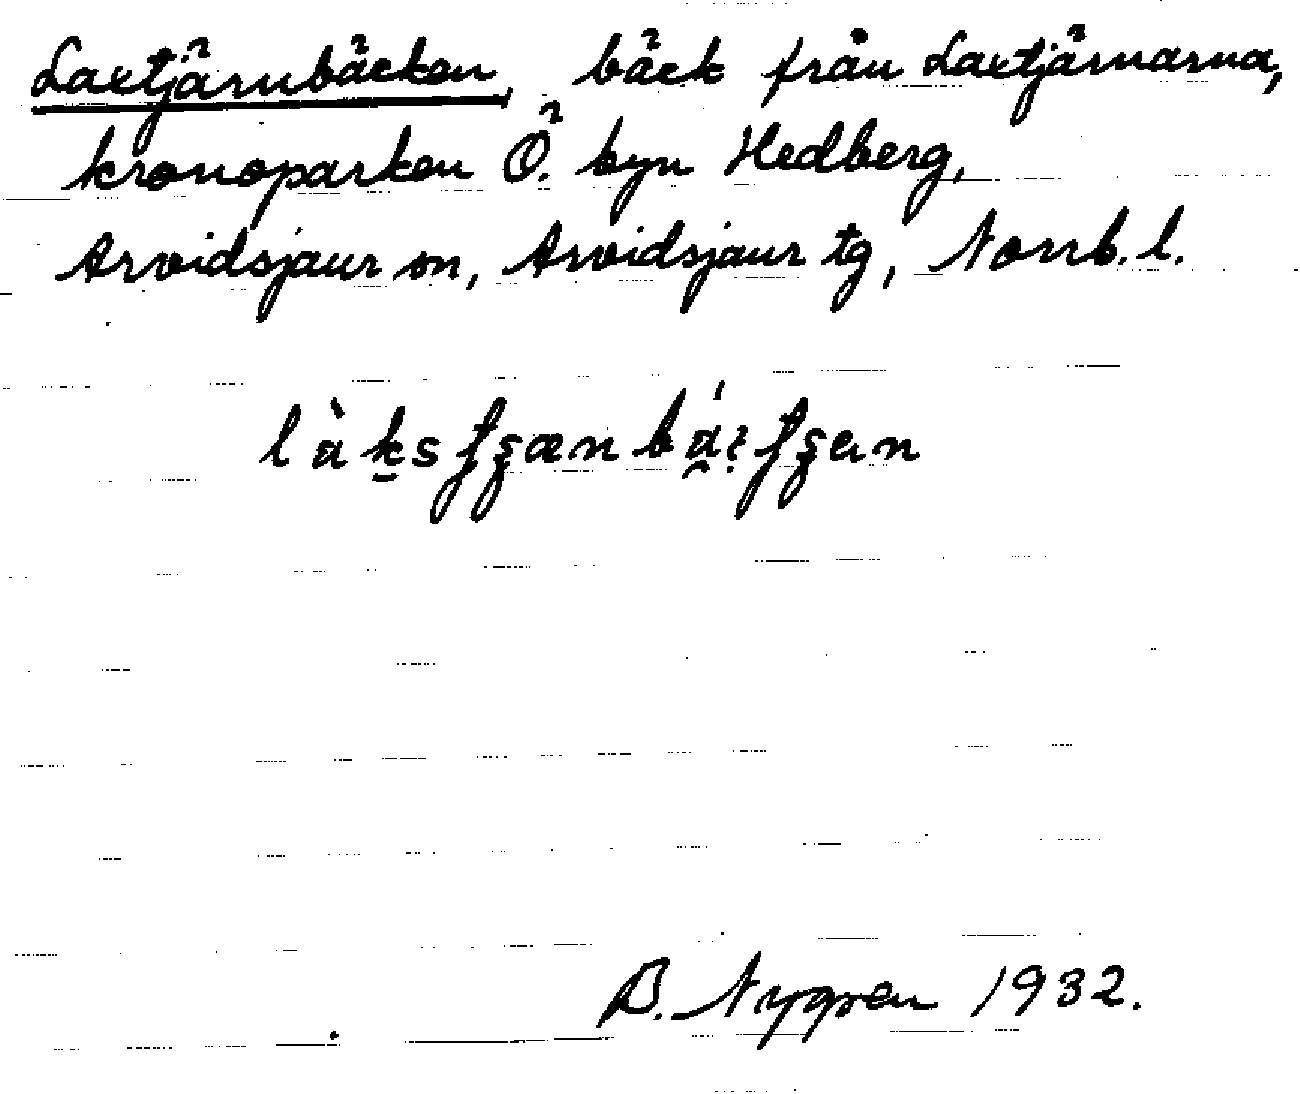 Laxtjärnbäcken, bäck från Laxtjärnarna,
kronoparken Ö. byn Hedberg,
Arvidsjaur sn, Arvidsjaur tg, Norrb. l.
B. Nygren 1932.